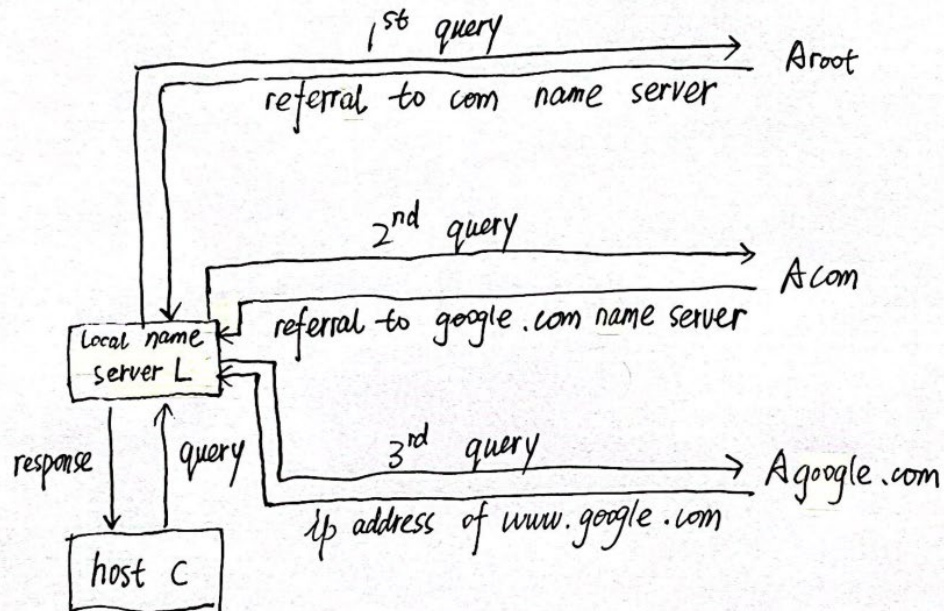 1st query
Aroot
referral to com name server
2nd query
Acom
referral to google.com name server
local name
server L
response
query
3rd query
Agoogle.com
ip address of www.google.com
host C